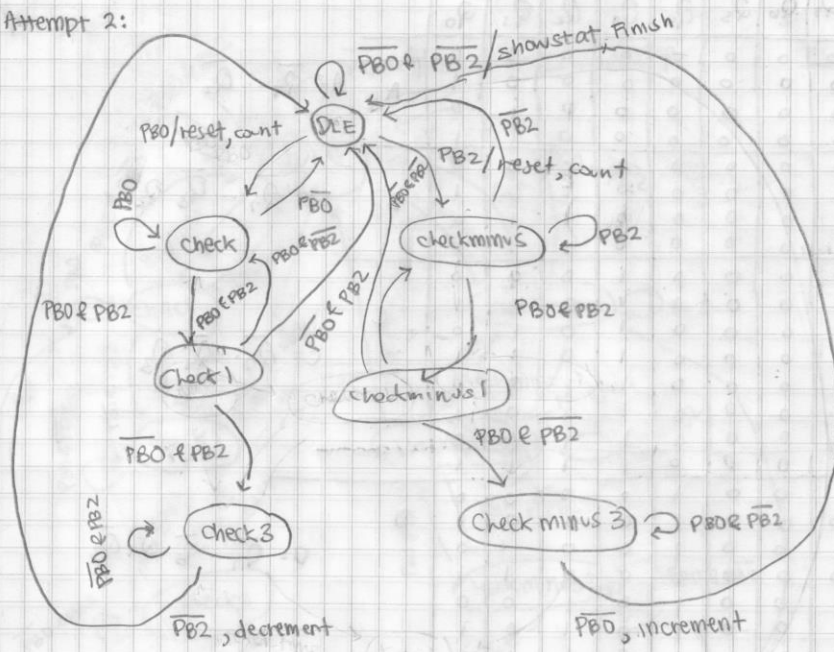 Attempt 2:
$\overline{PB0}$ & $\overline{PB2}$/showstat, Finish
IDLE
PB0/reset, count
$\overline{PB2}$
PB2/reset, count
$\overline{PB0}$ & $\overline{PB2}$
PB0
$\overline{PB0}$
Check
PB0 & $\overline{PB2}$
checkminus
PB2
PB0 & PB2
PB0 & PB2
$\overline{PB0}$ & PB2
PB0 & PB2
Check1
checkminus1
$\overline{PB0}$ & PB2
PB0 & $\overline{PB2}$
$\overline{PB0}$ & PB2
Check3
Checkminus3
PB0 & $\overline{PB2}$
$\overline{PB2}$, decrement
$\overline{PB0}$, increment